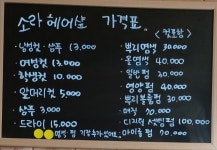 소라 헤어샵 가격표.
<컷포함>
남성컷·샴푸 13,000
여성컷 13.000
학생컷 10.000
앞머리컷 5.000
샴푸 3,000
드라이 15.000
뿌리염색 30.000
온염색 40.000
일반펌 30.000
영양펌 40.000
뿌리볼륨펌 30.000
매직 70.000
디지털 셋팅펌 100.000
아이롱펌 70.000